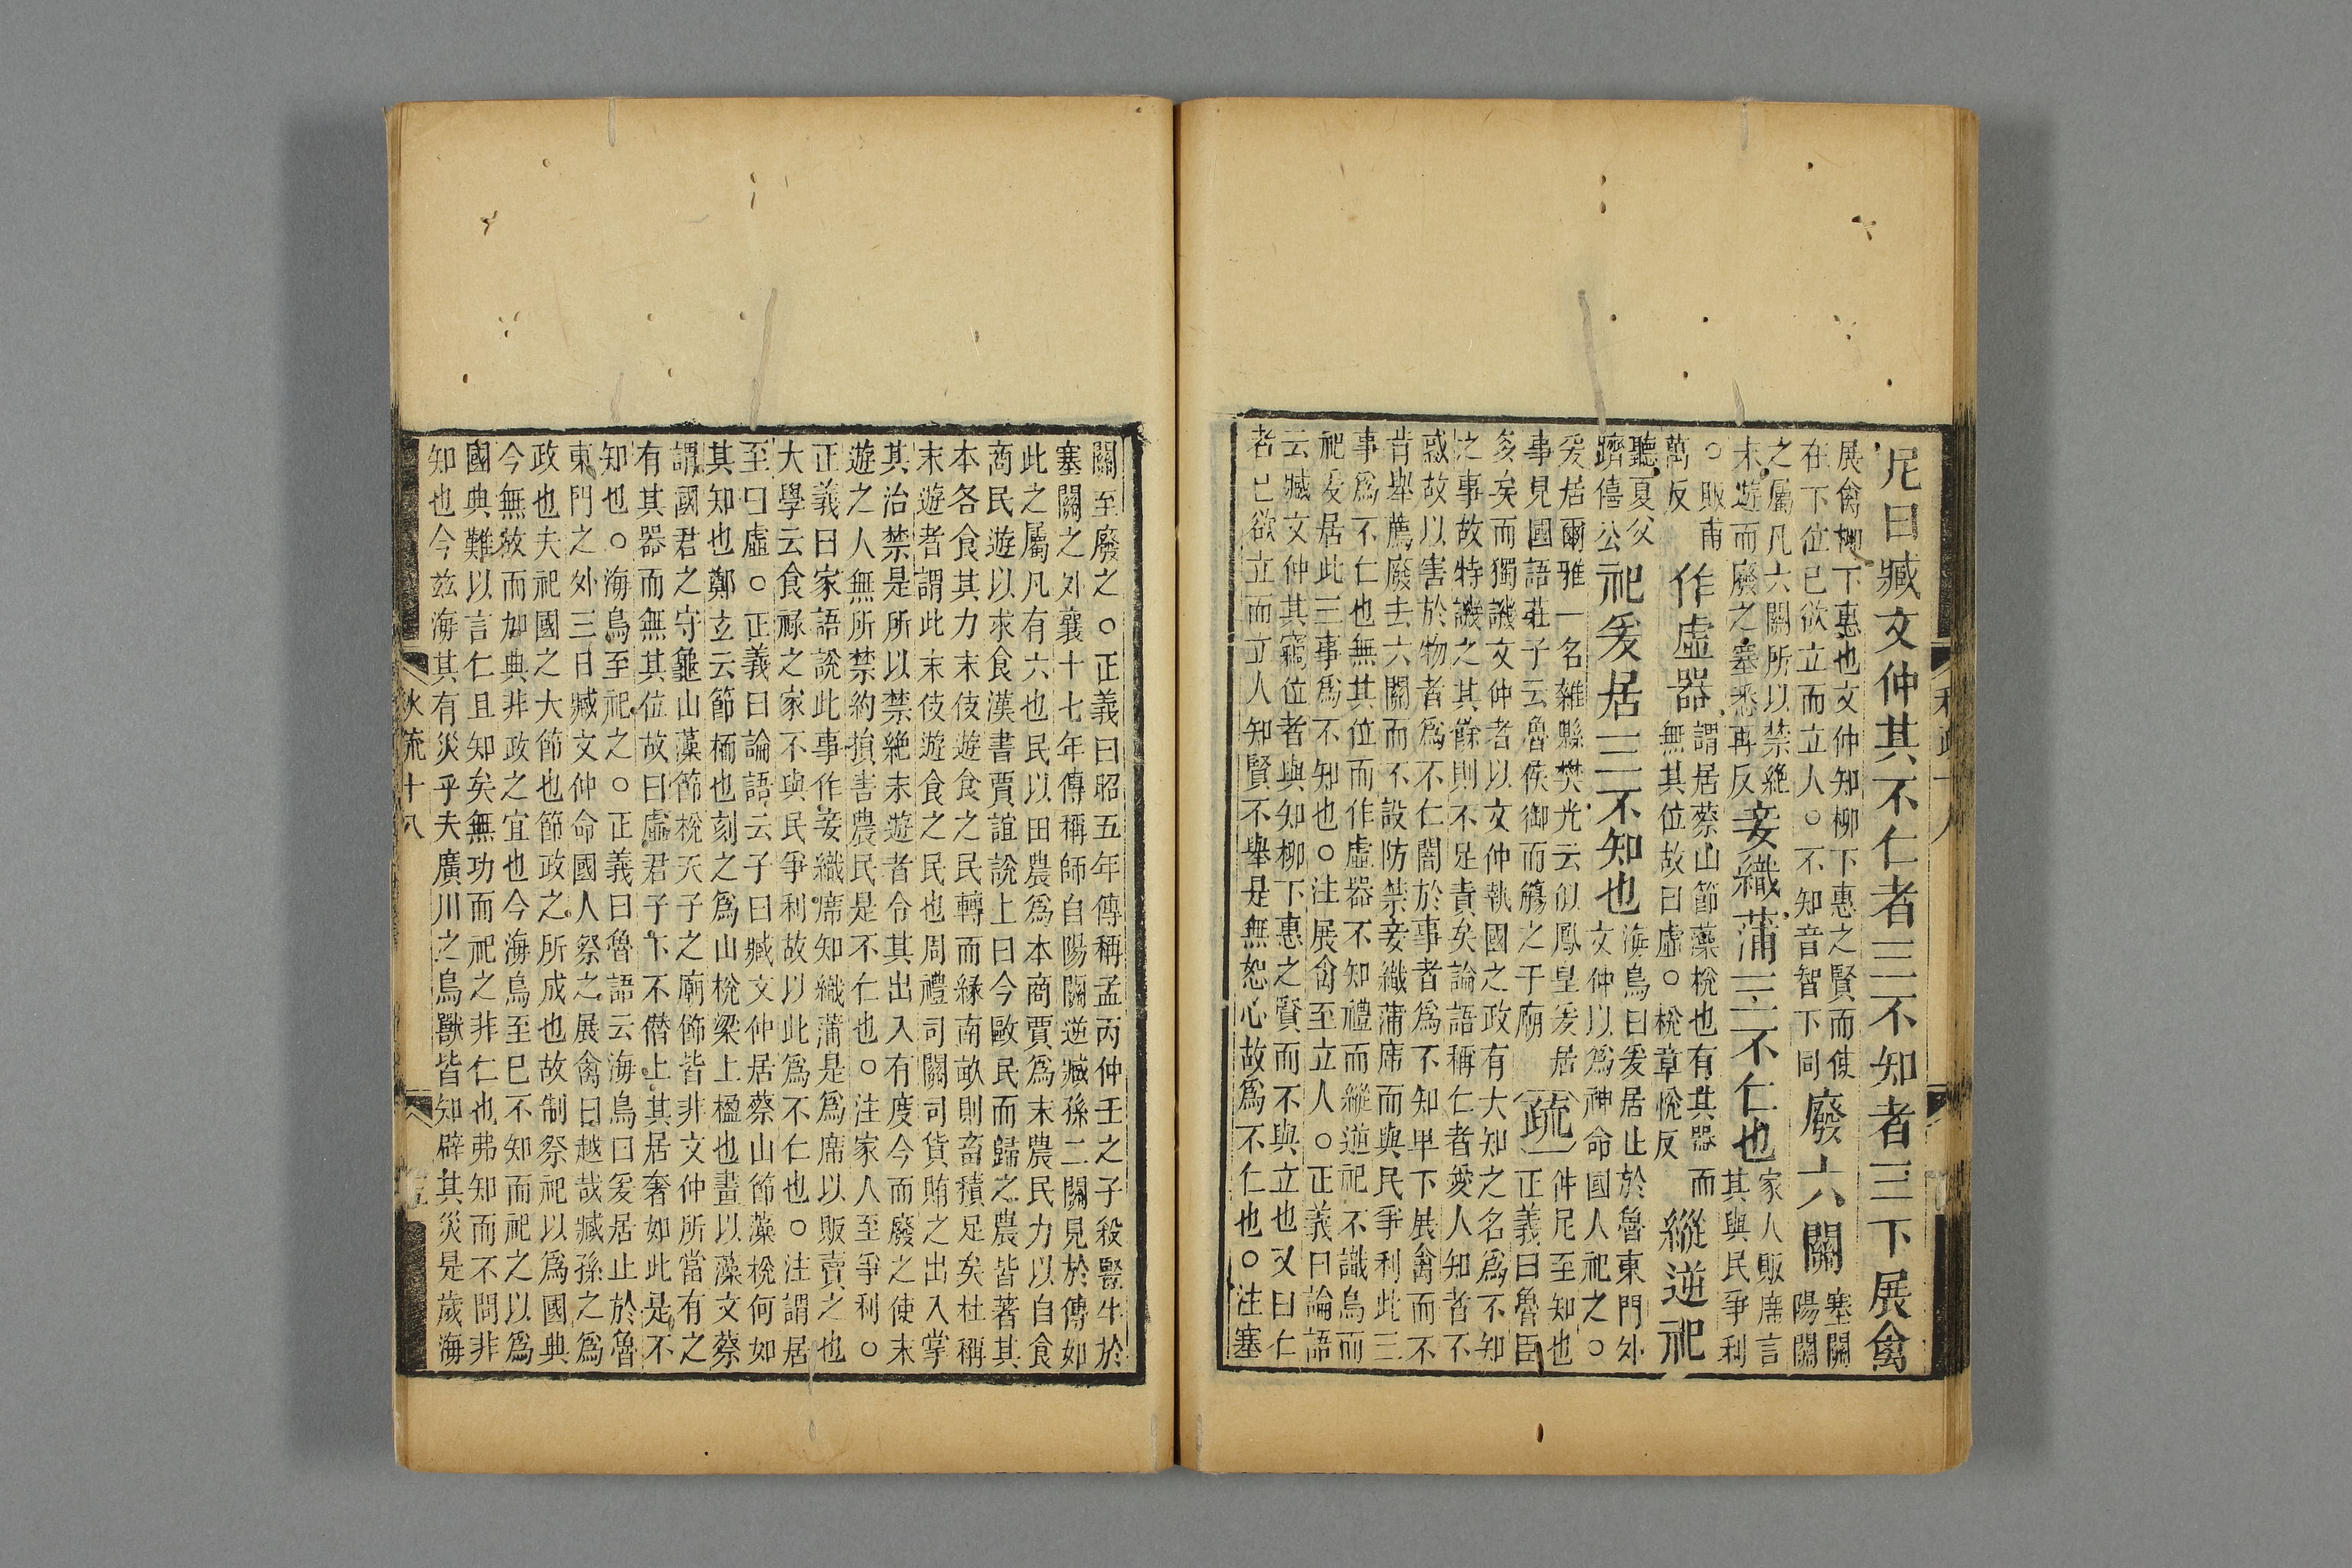 尼曰臧文仲其不仁者三不知者三下展禽
展禽柳下惠也文仲知柳下惠之賢而使
在下位已欲立而立人○不知音智下同
廢六關
塞關
陽關
之屬凡六關所以禁絶
末遊而廢之○塞悉再反
妾織蒲三不仁也
家人販席言
其與民爭利
○販甫
萬反
作虛器
謂居蔡山節藻梲也有其器而
無其位故曰虛○梲章悅反
縱逆祀
聽夏父
躋僖公
祀爰居三不知也
海鳥曰爰居止於魯東門外
文仲以爲神命國人祀之○
爰居爾雅一名雜縣樊光云似鳳皇爰居
事見國語莊子云魯侯御而觴之于廟
疏
仲尼至知也
正義曰魯臣
多矣而獨譏文仲者以文仲執國之政有大知之名爲不知
之事故特譏之其餘則不足責矣論語稱仁者愛人知者不
惑故以害於物者爲不仁闇於事者爲不知卑下展禽而不
肯舉薦廢去六關而不設防禁妾織蒲席而與民爭利此三
事爲不仁也無其位而作虛器不知禮而縱逆祀不識鳥而
祀爰居此三事爲不知也○注展禽至立人○正義曰論語
云臧文仲其竊位者與知柳下惠之賢而不與立也又曰仁
者己欲立而立人知賢不舉是無恕心故爲不仁也○注塞
關至廢之○正義曰昭五年傳稱孟丙仲壬之子殺豎牛於
塞關之外襄十七年傳稱師自陽關逆臧孫二關見於傳如
此之屬凡有六也民以田農爲本商賈爲末農民力以自食
商民遊以求食漢書賈誼說上曰今毆民而歸之農皆著其
本各食其力末伎遊食之民轉而緣南畝則畜積足矣杜稱
末遊者謂此末伎遊食之民也周禮司關司貨賄之出入掌
其治禁是所以禁絶末遊者令其出入有度今而廢之使末
遊之人無所禁約損害農民是不仁也○注家人至爭利○
正義曰家語說此事作妾織席知織蒲是爲席以販賣之也
大學云食祿之家不與民爭利故以此爲不仁也○注謂居
至曰虛○正義曰論語云子曰臧文仲居蔡山節藻梲何如
其知也鄭玄云節栭也刻之爲山梲梁上楹也畫以藻文蔡
謂國君之守龜山藻節梲天子之廟飾皆非文仲所當有之
有其器而無其位故曰虛君子下不僭上其居奢如此是不
知也○海鳥至祀之○正義曰魯語云海鳥曰爰居止於魯
東門之外三日臧文仲命國人祭之展禽曰越哉臧孫之爲
政也夫祀國之大節也節政之所成也故制祭祀以爲國典
今無故而加典非政之宜也今海鳥至已不知而祀之以爲
國典難以言仁且知矣無功而祀之非仁也弗知而不問非
知也今兹海其有災乎夫廣川之鳥獸皆知辟其災是歲海
火流十八